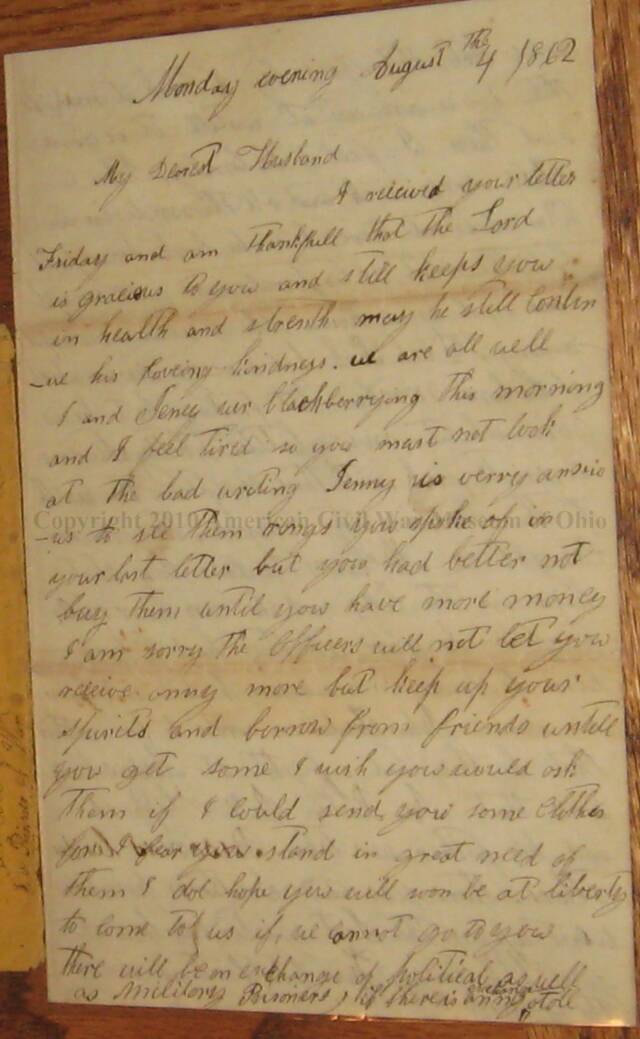 Monday evening August 4 Th 1862
My Dearest Husband
I recieved your letter
Friday and am thankfull that the Lord
is gracious to you and still keeps you
in health and strenth may he still contin
-ue his loveing kindness. we are all well
I and Jeney wer blackberrying this morning
and I feel tired so you must not look
at the bad writing Jenny is verry anxio
-us to see them rings you spoke of in
Copyright 2010 American Civil War Museum of Ohio
your last letter but you had better not
buy them until you have more money
I am sorry the Officers will not let you
recieve anny more but keep up your
spirits and borrow from friends untill
you get some I wish you would ask
them if I could send you some Clothes
for I fear you stand in great need of
them I doe hope you will soon be at liberty
to come to us if we cannot go to you
there will be an exchange of political as well
as Military Prisoners if there is anny atole